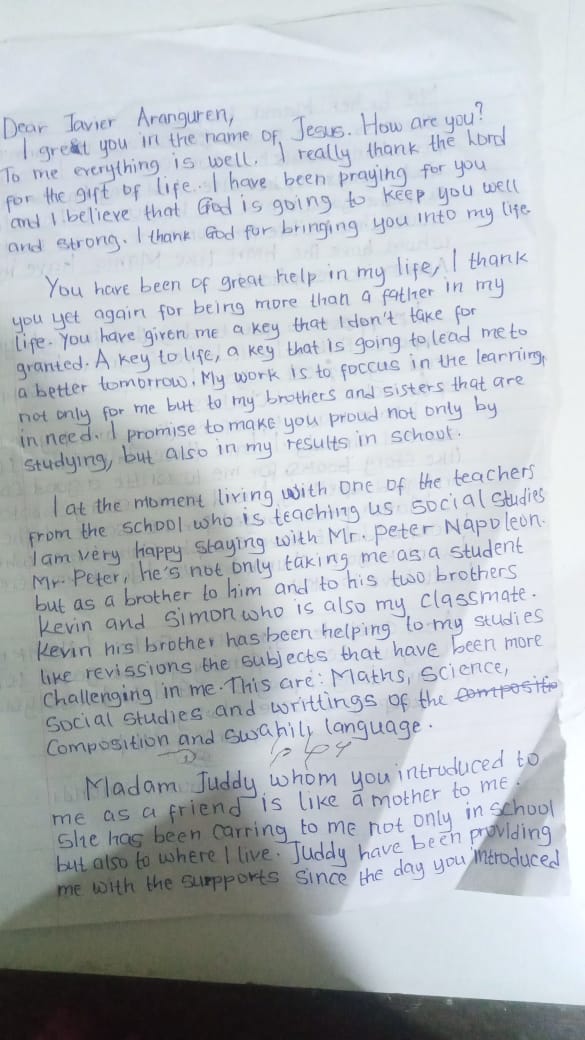 Dear Javier Aranguren,
I greet you in the name of Jesus. How are you?
To me everything is well. I really thank the Lord
for the gift of life. I have been praying for you
and I believe that God is going to keep you well
and strong. I thank God for bringing you into my life.
You have been of great help in my life, I thank
you yet again for being more than a father in my
life. You have given me a key that I don't take for
granted. A key to life, a key that is going to lead me to
a better tomorrow. My work is to foccus in the learning,
not only for me but to my brothers and sisters that are
in need. I promise to make you proud not only by
studying, but also in my results in school.
I at the moment living with one of the teachers
from the school who is teaching us social studies
I am very happy staying with Mr. Peter Napoleon.
Mr. Peter, he's not only taking me as a student
but as a brother to him and to his two brothers
Kevin and Simon who is also my classmate.
Kevin his brother has been helping to my studies
like revissions the subjects that have been more
challenging in me. This are: Maths, Science,
Social studies and writtings of the compositio
Composition and Swahili language.
Madam Juddy whom you introduced to
me as a friend is like a mother to me.
She has been carring to me not only in school
but also to where I live. Juddy have been providing
me with the supports since the day you introduced